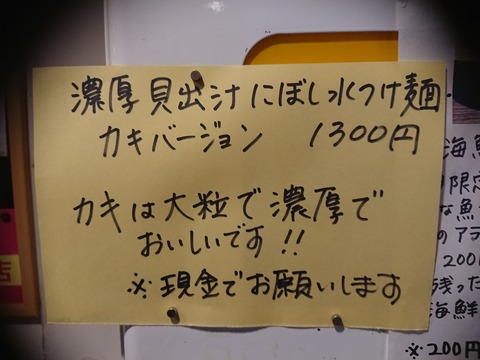 濃厚貝出汁にぼし水つけ麺
カキバージョン 1300円
カキは大粒で濃厚で
おいしいです!!
※現金でお願いします
海鮮
限定
な魚
のアラ
200
残った
海鮮
※200円
店